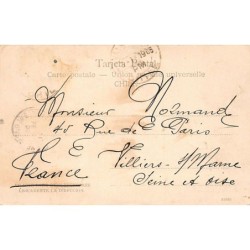 Tarjeta Postal
Carte postale - Union postale universelle
CHILE
Monsieur Normand
45 Rue de Paris
Villiers s/Marne
France
Seine et Oise